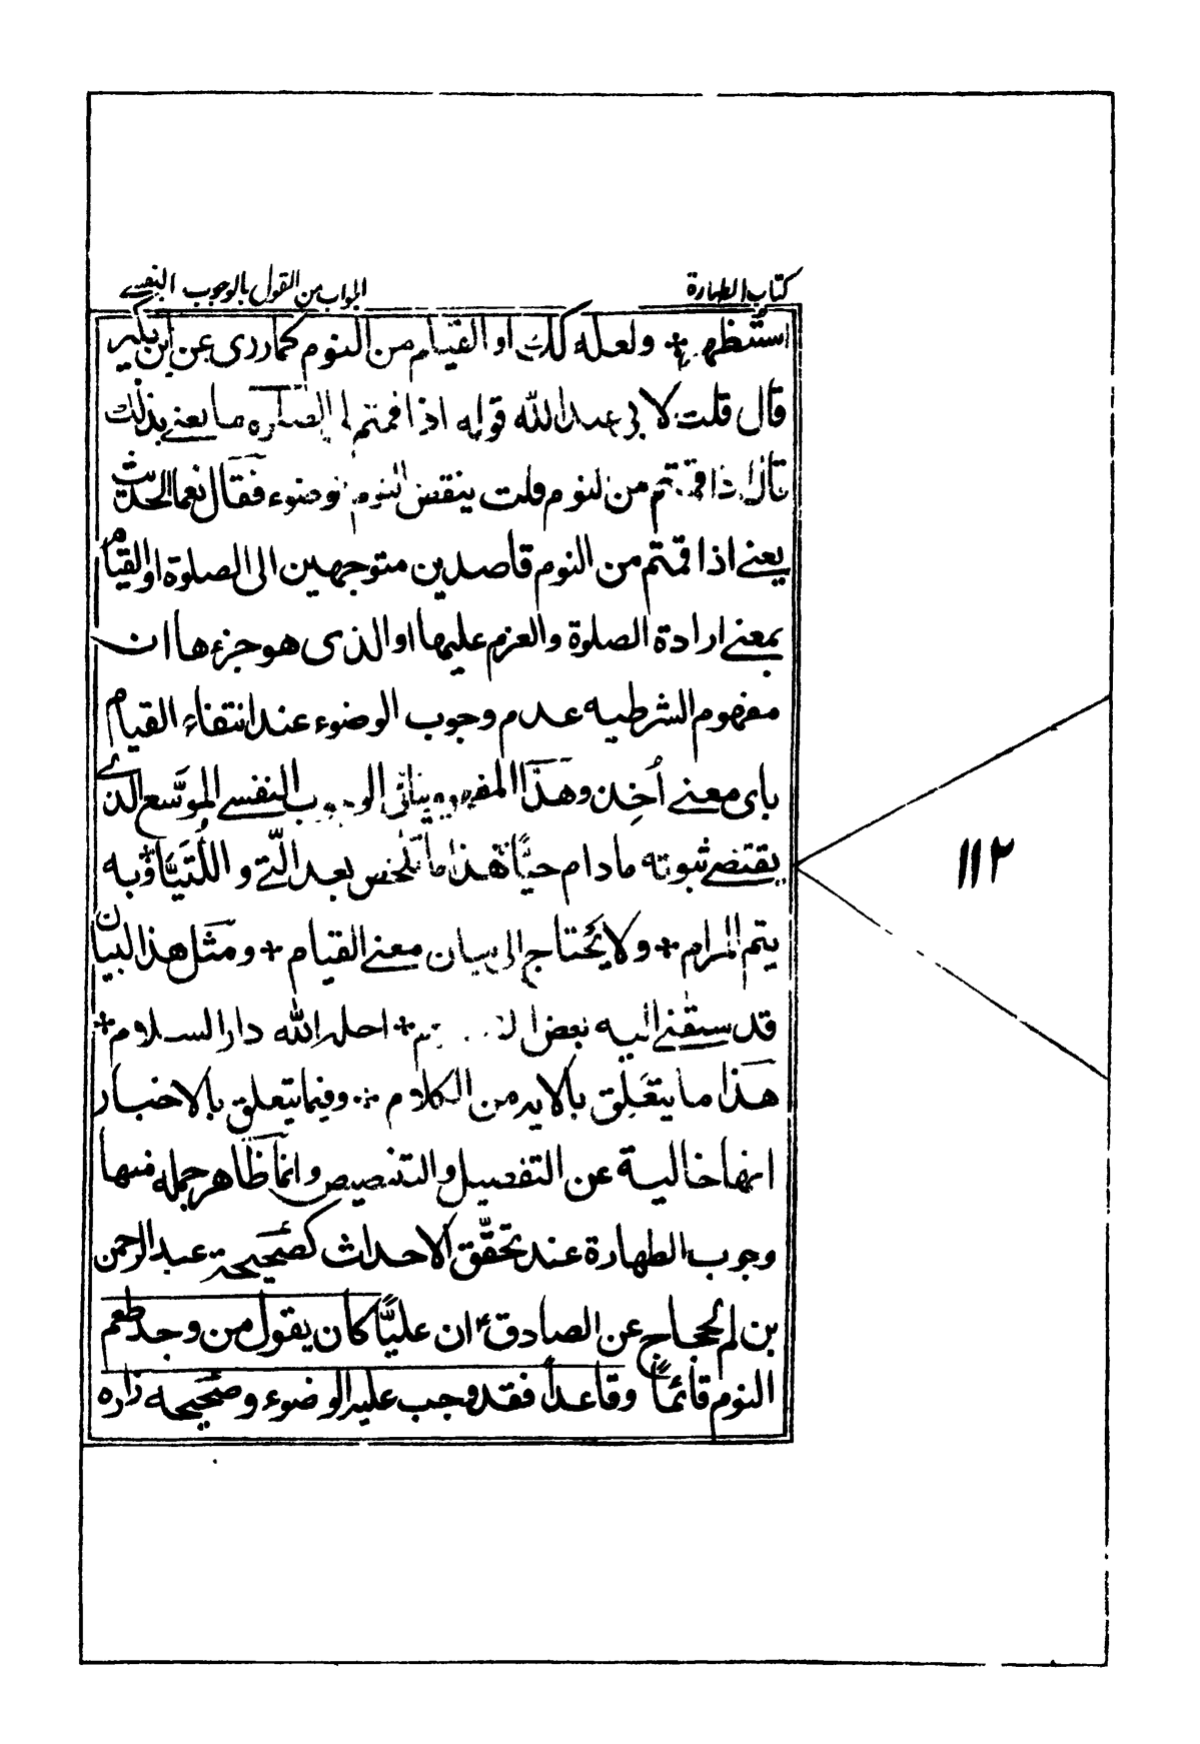 كتاب الطهارة
الجواب من القول بالوجوب النفسے
استظهر ولعله كك او القيام من النوم كما روى عن ابن بكير
قال قلت لابي عبد الله قوله اذا قمتم الى الصلوة ما يعنے بذلك
قال اذا قمتم من النوم قلت ينقض النوم الوضوء فقال نعم الحديث
يعنے اذا قمتم من النوم قاصدين متوجهين الى الصلوة او القيام
بمعنے ارادة الصلوة والعزم عليها او الذى هو جزءها ان
مفهوم الشرطيه عدم وجوب الوضوء عند انتفاء القيام
باى معنے أخذ وهذا المفهوم ينافى الوجوب النفسے الموسّع الذے
يقتضے ثبوته مادام حيًّا هذا ما تلخص بعد اللّتے و اللُّتَيَّا وبه
يتم المرام + ولا يحتاج الى بيان معنے القيام + ومثل هذا البيان
قد سبقنے اليه بعض + احله الله دار السلام +
هذا ما يتعلق بالايه من الكلام + وفيما يتعلق بالاخبار
انها خالية عن التفصيل والتنصيص وانما ظاهر جمله منها
وجوب الطهارة عند تحقّق الاحداث كصحيحة عبد الرحمن
بن الحجاج عن الصادق ع ان عليًّا كان يقول من وجد طعم
النوم قائمًا وقاعدًا فقد وجب عليه الوضوء وصحيحه زراره
١١٢